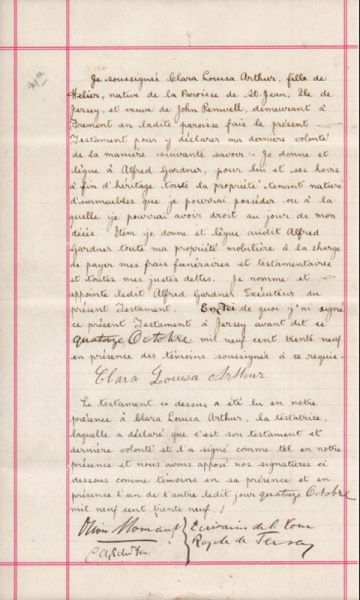 Je soussignée Clara Louisa Arthur, fille de
Helier, native de la Paroisse de St. Jean, Ile de
Jersey, et veuve de John Penwell, demeurant à
Bremont en ladite paroisse fais le présent
Testament pour y déclarer ma dernière volonté
de la manière suivante savoir:- Je donne et
lègue à Alfred Gardner, pour lui et ses hoirs
à fin d'héritage toute la propriété tenant nature
d'immeubles que je pourrai posséder ou à la
quelle je pourrai avoir droit au jour de mon
décès. Item je donne et lègue audit Alfred
Gardner toute ma propriété mobilière à la charge
de payer mes frais funéraires et testamentaires
et toutes mes justes dettes. Je nomme et
appointe ledit Alfred Gardner Exécuteur du
présent Testament. En foi de quoi j'ai signé
ce présent Testament à Jersey avant dit ce
quatorze Octobre mil neuf cent trente neuf
en présence des témoins soussignés à ce requis.
Clara Louisa Arthur
Le testament ci dessus a été lu en notre
présence à Clara Louisa Arthur, la testatrice,
laquelle a déclaré que c'est son testament et
dernière volonté et l'a signé comme tel en notre
présence et nous avons apposé nos signatures ci
dessous comme temoins en sa présence et en
présence l'un de l'autre ledit jour quatorze Octobre
mil neuf cent trente neuf.
Ecrivains de la Cour
Royale de Jersey